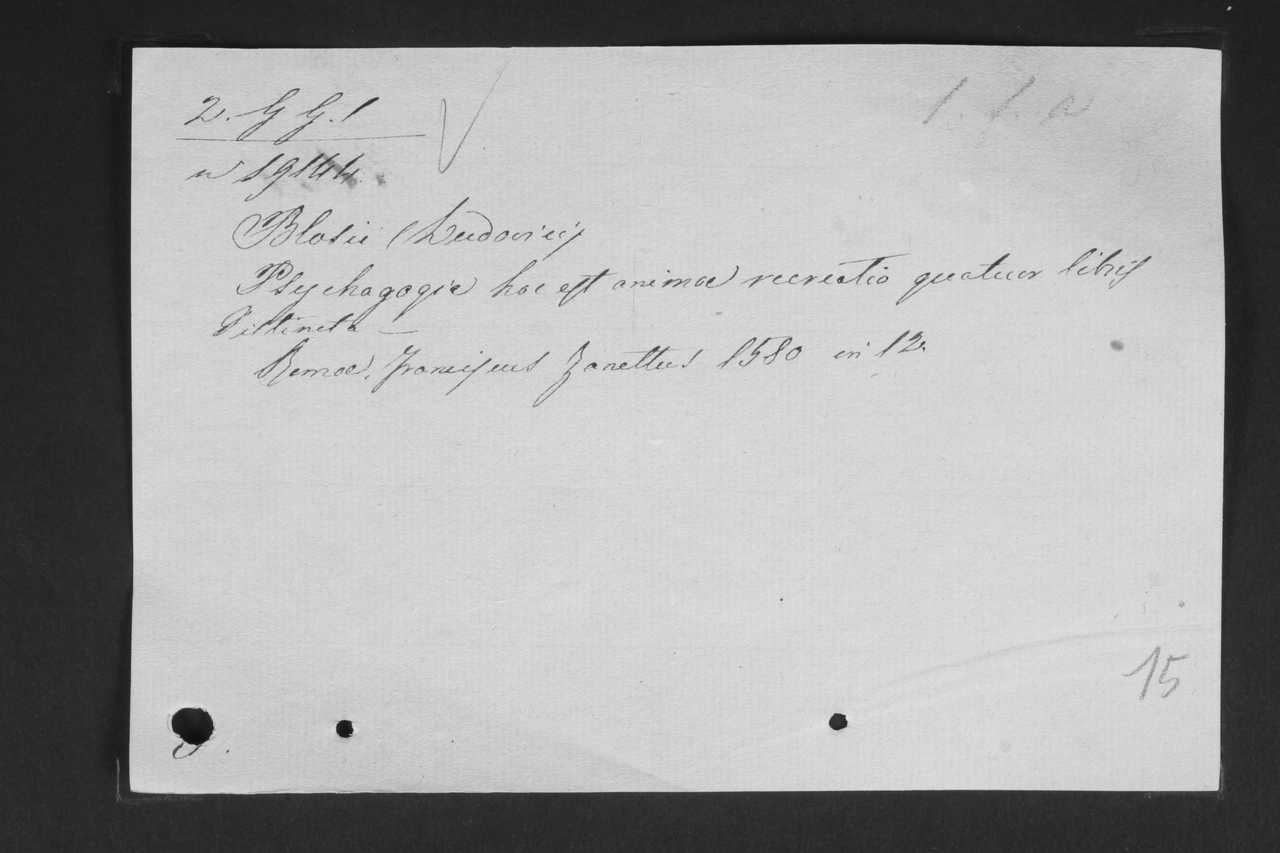 2. G G. 1
1. f. a
n 19144
Blosii (Ludovici)
Psychagogia hoc est animae recreatio quatuor libris
distincta —
Romae, Franciscus Zanettus 1580 in 12.
15